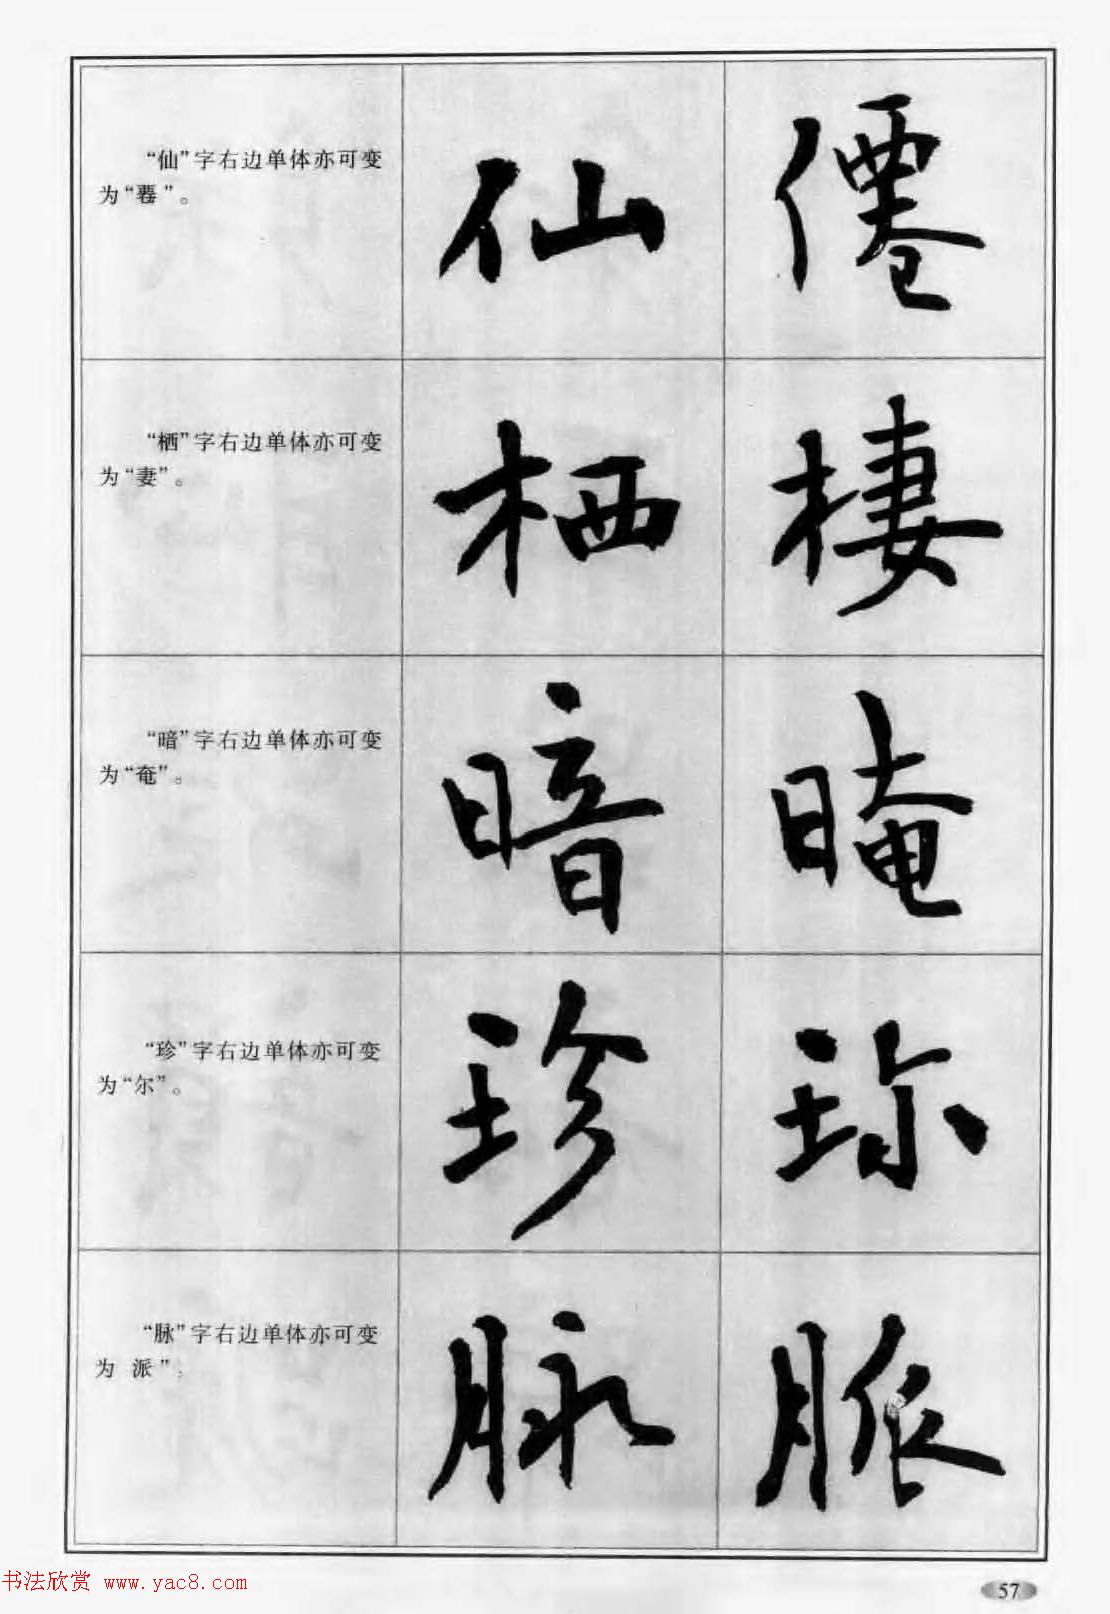 “仙”字右边单体亦可变
为“䙴”。
仙 僊
“栖”字右边单体亦可变
为“妻”。
栖 棲
“暗”字右边单体亦可变
为“奄”。
暗 晻
“珍”字右边单体亦可变
为“尔”。
珍 珎
“脉”字右边单体亦可变
为 派”.
脉 脈
书法欣赏 www.yac8.com
57